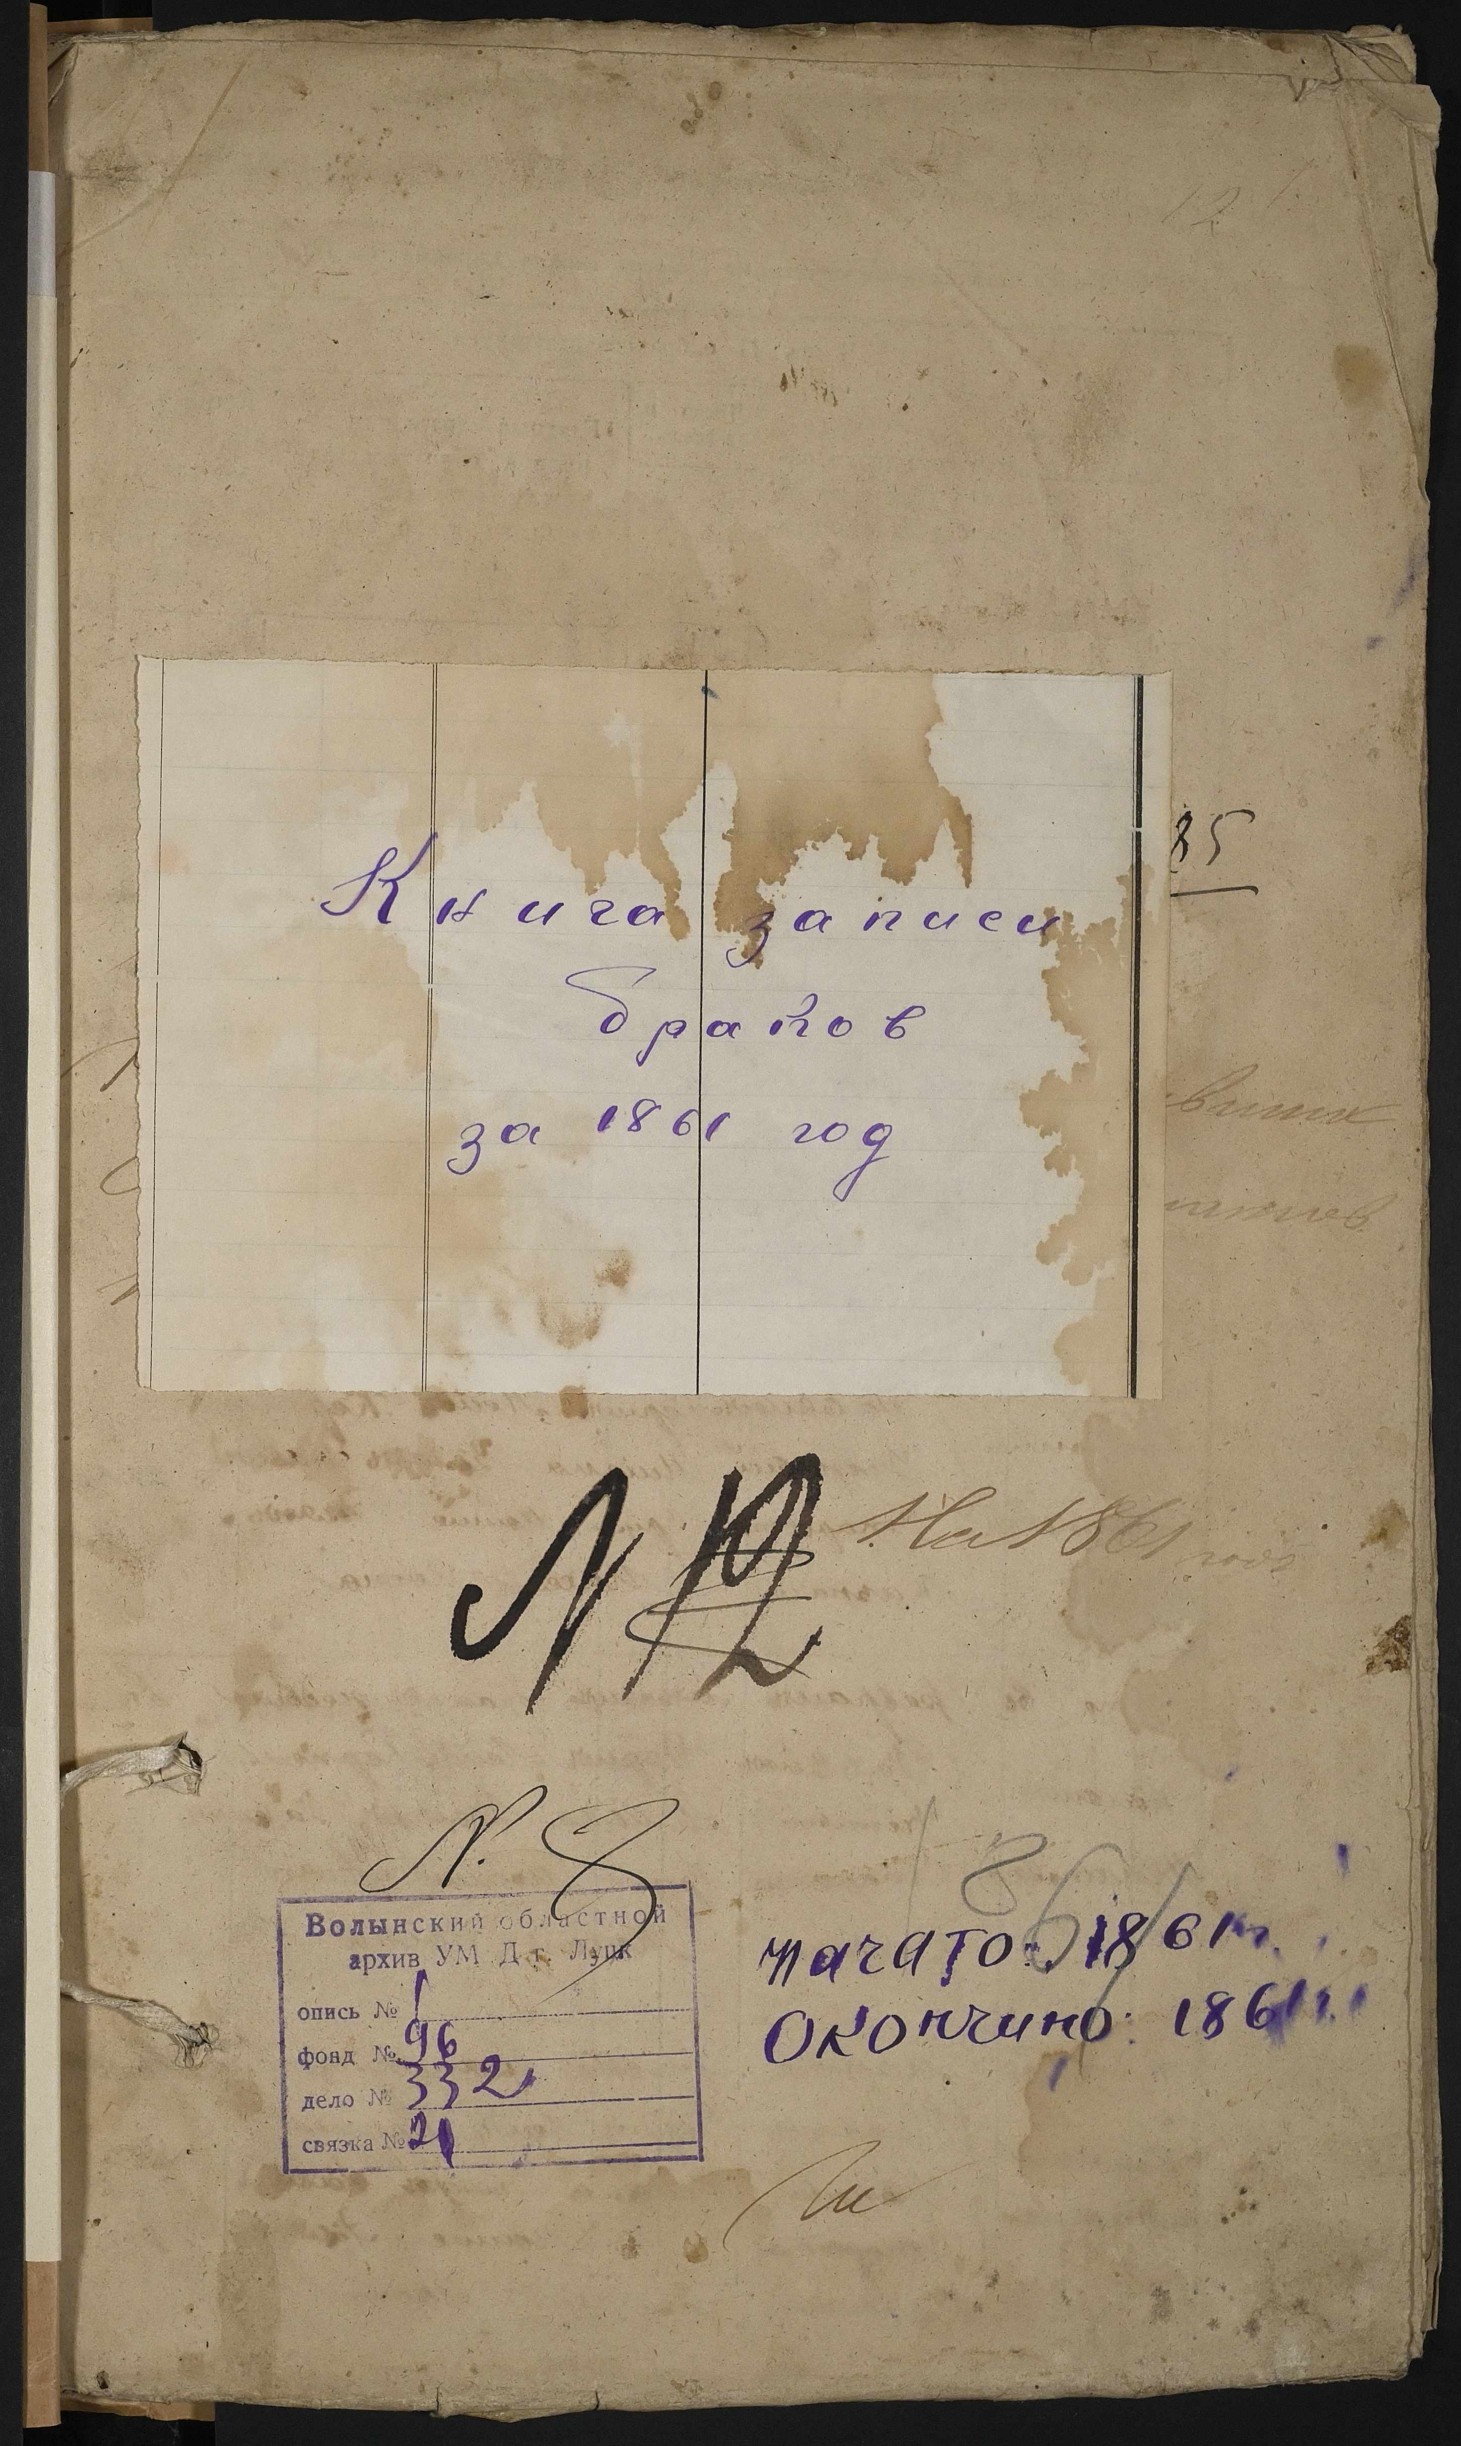 12
Книга записи
85
браков
за 1861 год
На 1861 годъ
N 12
N. 8
1861
Волынский областной
архив УМ Д г. Луцк
опись № 1
фонд № 96
дело № 332
связка № 21
Начато: 1861 г.
Окончино: 1861 г.